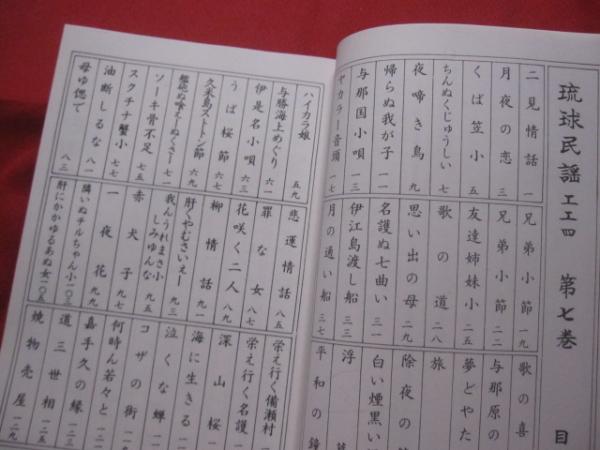 琉球民謡工工四 第七巻
目
二見情話 一
月夜の恋 三
くば笠小 五
ちんぬくじゅうしい 七
夜啼き鳥 九
帰らぬ我が子 一一
与那国小唄 一三
ヤカラー音頭 一七
兄弟小節 一九
兄弟小節 二二
友達姉妹小 二五
歌の道 二八
思い出の母 二九
名護ぬ七曲い 三一
伊江島渡し船 三三
月の通い船 三七
歌の喜
与那原の
夢どやた
旅
除夜の
白い煙黒い
浮
平和の鐘
ハイカラ娘 五九
与勝海上めぐり 六一
伊是名小唄 六三
うば桜節 六七
久米島ストトン節 六九
艦砲ぬ喰えーぬくさー 七一
ソーキ骨不足 七五
スクチナ蟹小 七七
油断しるな 八一
母ゆ偲で 八三
悲運情話 八五
罪な女 八七
花咲く二人 八九
柳情話 九一
肝くやむさいえー 九三
我んうれまさ小
しみゆんな 九五
赤犬子 九七
一夜花 九九
隣いぬチルちゃん小 一〇三
肝にかかゆるあぬ女 一〇五
栄え行く備瀬村
栄え行く名護
深山桜
海に生きる
泣くな蝉
コザの街
何時ん若々と
嘉手久の縁 一二三
道三世相 一二五
焼物売屋 一二九